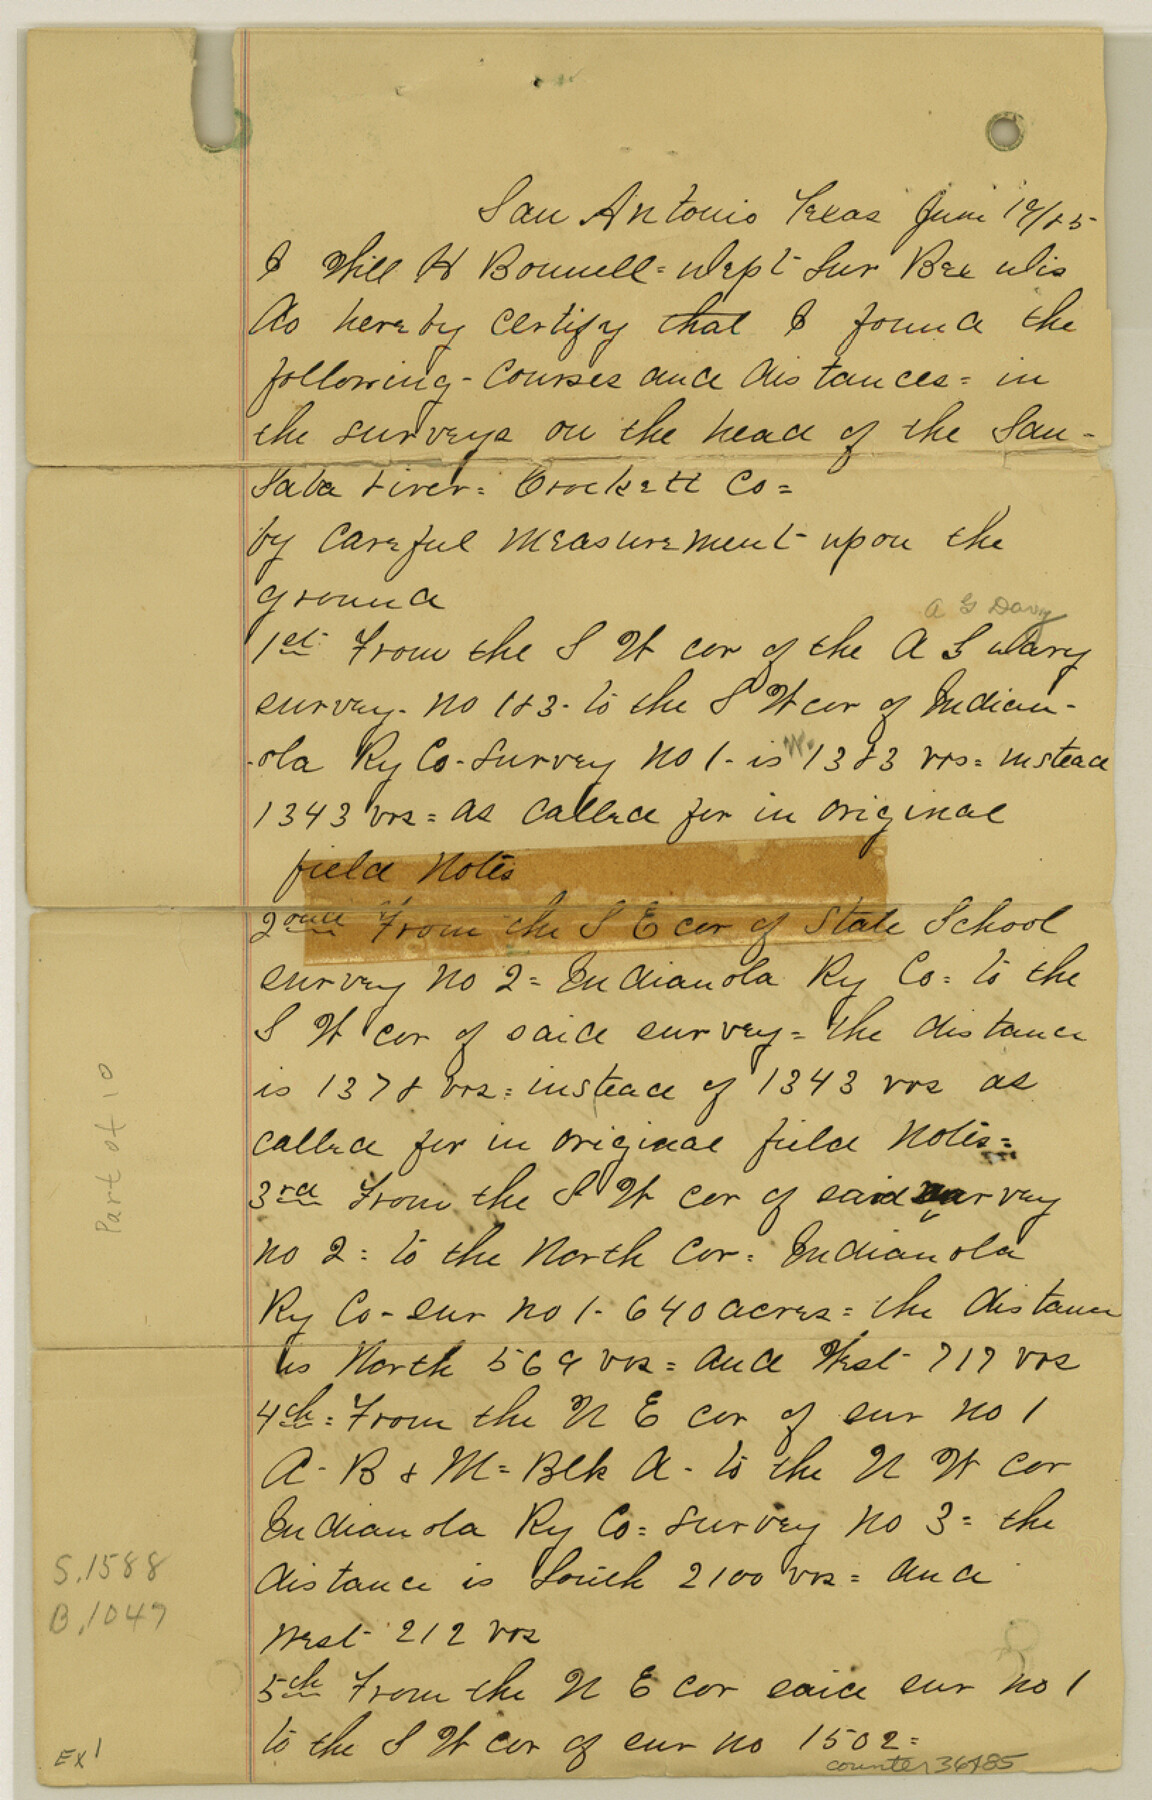 San Antonio Texas June 19/85
I Will H Bonnell = Dept Sur Bex Dis
do hereby certify that I found the
following - courses and distances = in
the surveys on the head of the San -
Saba river = Crockett Co =
by careful measurement upon the
ground
A G Davy
1st From the S W cor of the A G Davy
survey - no 183 - to the S W cor of Indian -
- ola Ry Co - survey no 1 - is W. 1383 vrs = instead
1343 vrs = as called for in original
field notes
2ond From the S E cor of State School
survey no 2 = Indianola Ry Co = to the
S W cor of said survey = the distance
is 1378 vrs = instead of 1343 vrs as
called for in original field notes =
3rd From the S W cor of said survey
no 2 = to the North cor = Indianola
Ry Co - sur no 1 - 640 acres = the distance
is North 569 vrs = and West - 717 vrs
4th = From the N E cor of sur no 1
A - B & M = Blk A - to the N W cor
Indianola Ry Co = survey no 3 = the
distance is South 2100 vrs = and
West - 212 vrs
5th From the N E cor said sur no 1
to the S W cor of sur no 1502 =
counter 36485
Part of 10
S.1588
B.1047
Ex 1